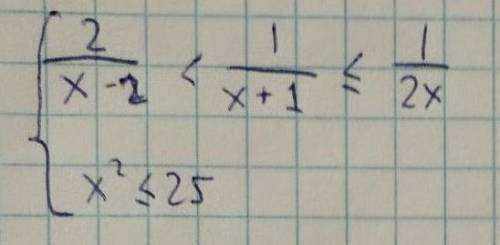 2/(x-2) < 1/(x+1) ≤ 1/(2x)
x² ≤ 25